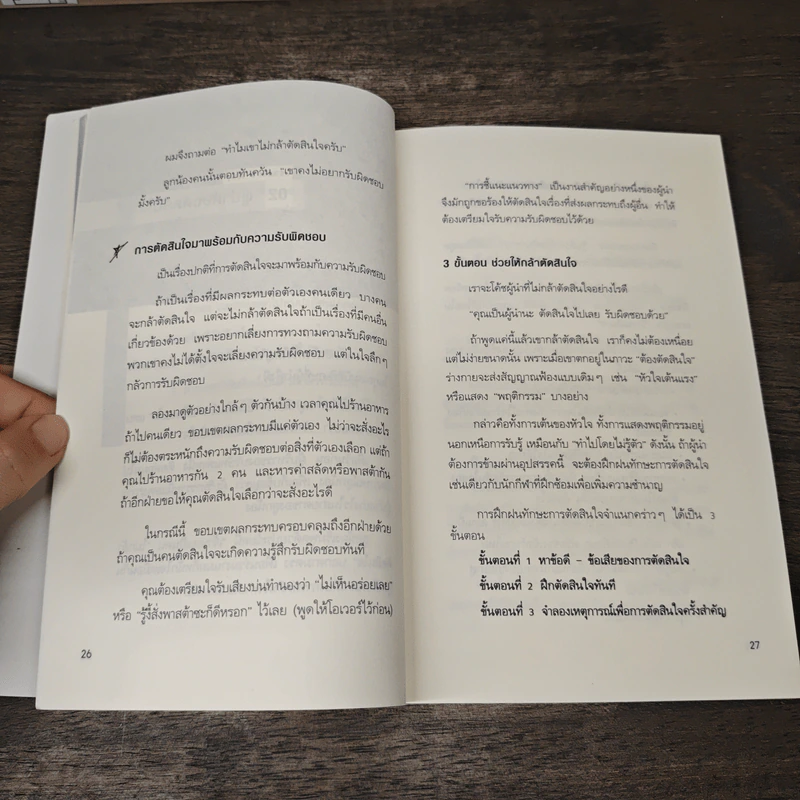 ผมจึงถามต่อ "ทำไมเขาไม่กล้าตัดสินใจครับ"
ลูกน้องคนนั้นตอบทันควัน "เขาคงไม่อยากรับผิดชอบ
มั้งครับ"
การตัดสินใจมาพร้อมกับความรับผิดชอบ
เป็นเรื่องปกติที่การตัดสินใจจะมาพร้อมกับความรับผิดชอบ
ถ้าเป็นเรื่องที่มีผลกระทบต่อตัวเองคนเดียว บางคน
จะกล้าตัดสินใจ แต่จะไม่กล้าตัดสินใจถ้าเป็นเรื่องที่มีคนอื่น
เกี่ยวข้องด้วย เพราะอยากเลี่ยงการทวงถามความรับผิดชอบ
พวกเขาคงไม่ได้ตั้งใจจะเลี่ยงความรับผิดชอบ แต่ในใจลึกๆ
กลัวการรับผิดชอบ
ลองมาดูตัวอย่างใกล้ๆ ตัวกันบ้าง เวลาคุณไปร้านอาหาร
ถ้าไปคนเดียว ขอบเขตผลกระทบมีแค่ตัวเอง ไม่ว่าจะสั่งอะไร
ก็ไม่ต้องตระหนักถึงความรับผิดชอบต่อสิ่งที่ตัวเองเลือก แต่ถ้า
คุณไปร้านอาหารกัน 2 คน และหารค่าสลัดหรือพาสต้ากัน
ถ้าอีกฝ่ายขอให้คุณตัดสินใจเลือกว่าจะสั่งอะไรดี
ในกรณีนี้ ขอบเขตผลกระทบครอบคลุมถึงอีกฝ่ายด้วย
ถ้าคุณเป็นคนตัดสินใจจะเกิดความรู้สึกรับผิดชอบทันที
คุณต้องเตรียมใจรับเสียงบ่นทำนองว่า "ไม่เห็นอร่อยเลย"
หรือ "รู้งี้สั่งพาสต้าซะก็ดีหรอก" ไว้เลย (พูดให้โอเวอร์ไว้ก่อน)
26
"การชี้แนะแนวทาง" เป็นงานสำคัญอย่างหนึ่งของผู้นำ
จึงมักถูกขอร้องให้ตัดสินใจเรื่องที่ส่งผลกระทบถึงผู้อื่น ทำให้
ต้องเตรียมใจรับความรับผิดชอบไว้ด้วย
3 ขั้นตอน ช่วยให้กล้าตัดสินใจ
เราจะโค้ชผู้นำที่ไม่กล้าตัดสินใจอย่างไรดี
"คุณเป็นผู้นำนะ ตัดสินใจไปเลย รับผิดชอบด้วย"
ถ้าพูดแค่นี้แล้วเขากล้าตัดสินใจ เราก็คงไม่ต้องเหนื่อย
แต่ไม่ง่ายขนาดนั้น เพราะเมื่อเขาตกอยู่ในภาวะ "ต้องตัดสินใจ"
ร่างกายจะส่งสัญญาณฟ้องแบบเดิมๆ เช่น "หัวใจเต้นแรง"
หรือแสดง "พฤติกรรม" บางอย่าง
กล่าวคือทั้งการเต้นของหัวใจ ทั้งการแสดงพฤติกรรมอยู่
นอกเหนือการรับรู้ เหมือนกับ "ทำไปโดยไม่รู้ตัว" ดังนั้น ถ้าผู้นำ
ต้องการข้ามผ่านอุปสรรคนี้ จะต้องฝึกฝนทักษะการตัดสินใจ
เช่นเดียวกับนักกีฬาที่ฝึกซ้อมเพื่อเพิ่มความชำนาญ
การฝึกฝนทักษะการตัดสินใจจำแนกคร่าวๆ ได้เป็น 3
ขั้นตอน
ขั้นตอนที่ 1 หาข้อดี – ข้อเสียของการตัดสินใจ
ขั้นตอนที่ 2 ฝึกตัดสินใจทันที
ขั้นตอนที่ 3 จำลองเหตุการณ์เพื่อการตัดสินใจครั้งสำคัญ
27